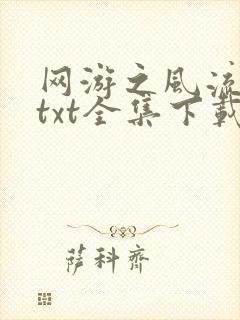 网游之风流
txt全集下载
萨科齐